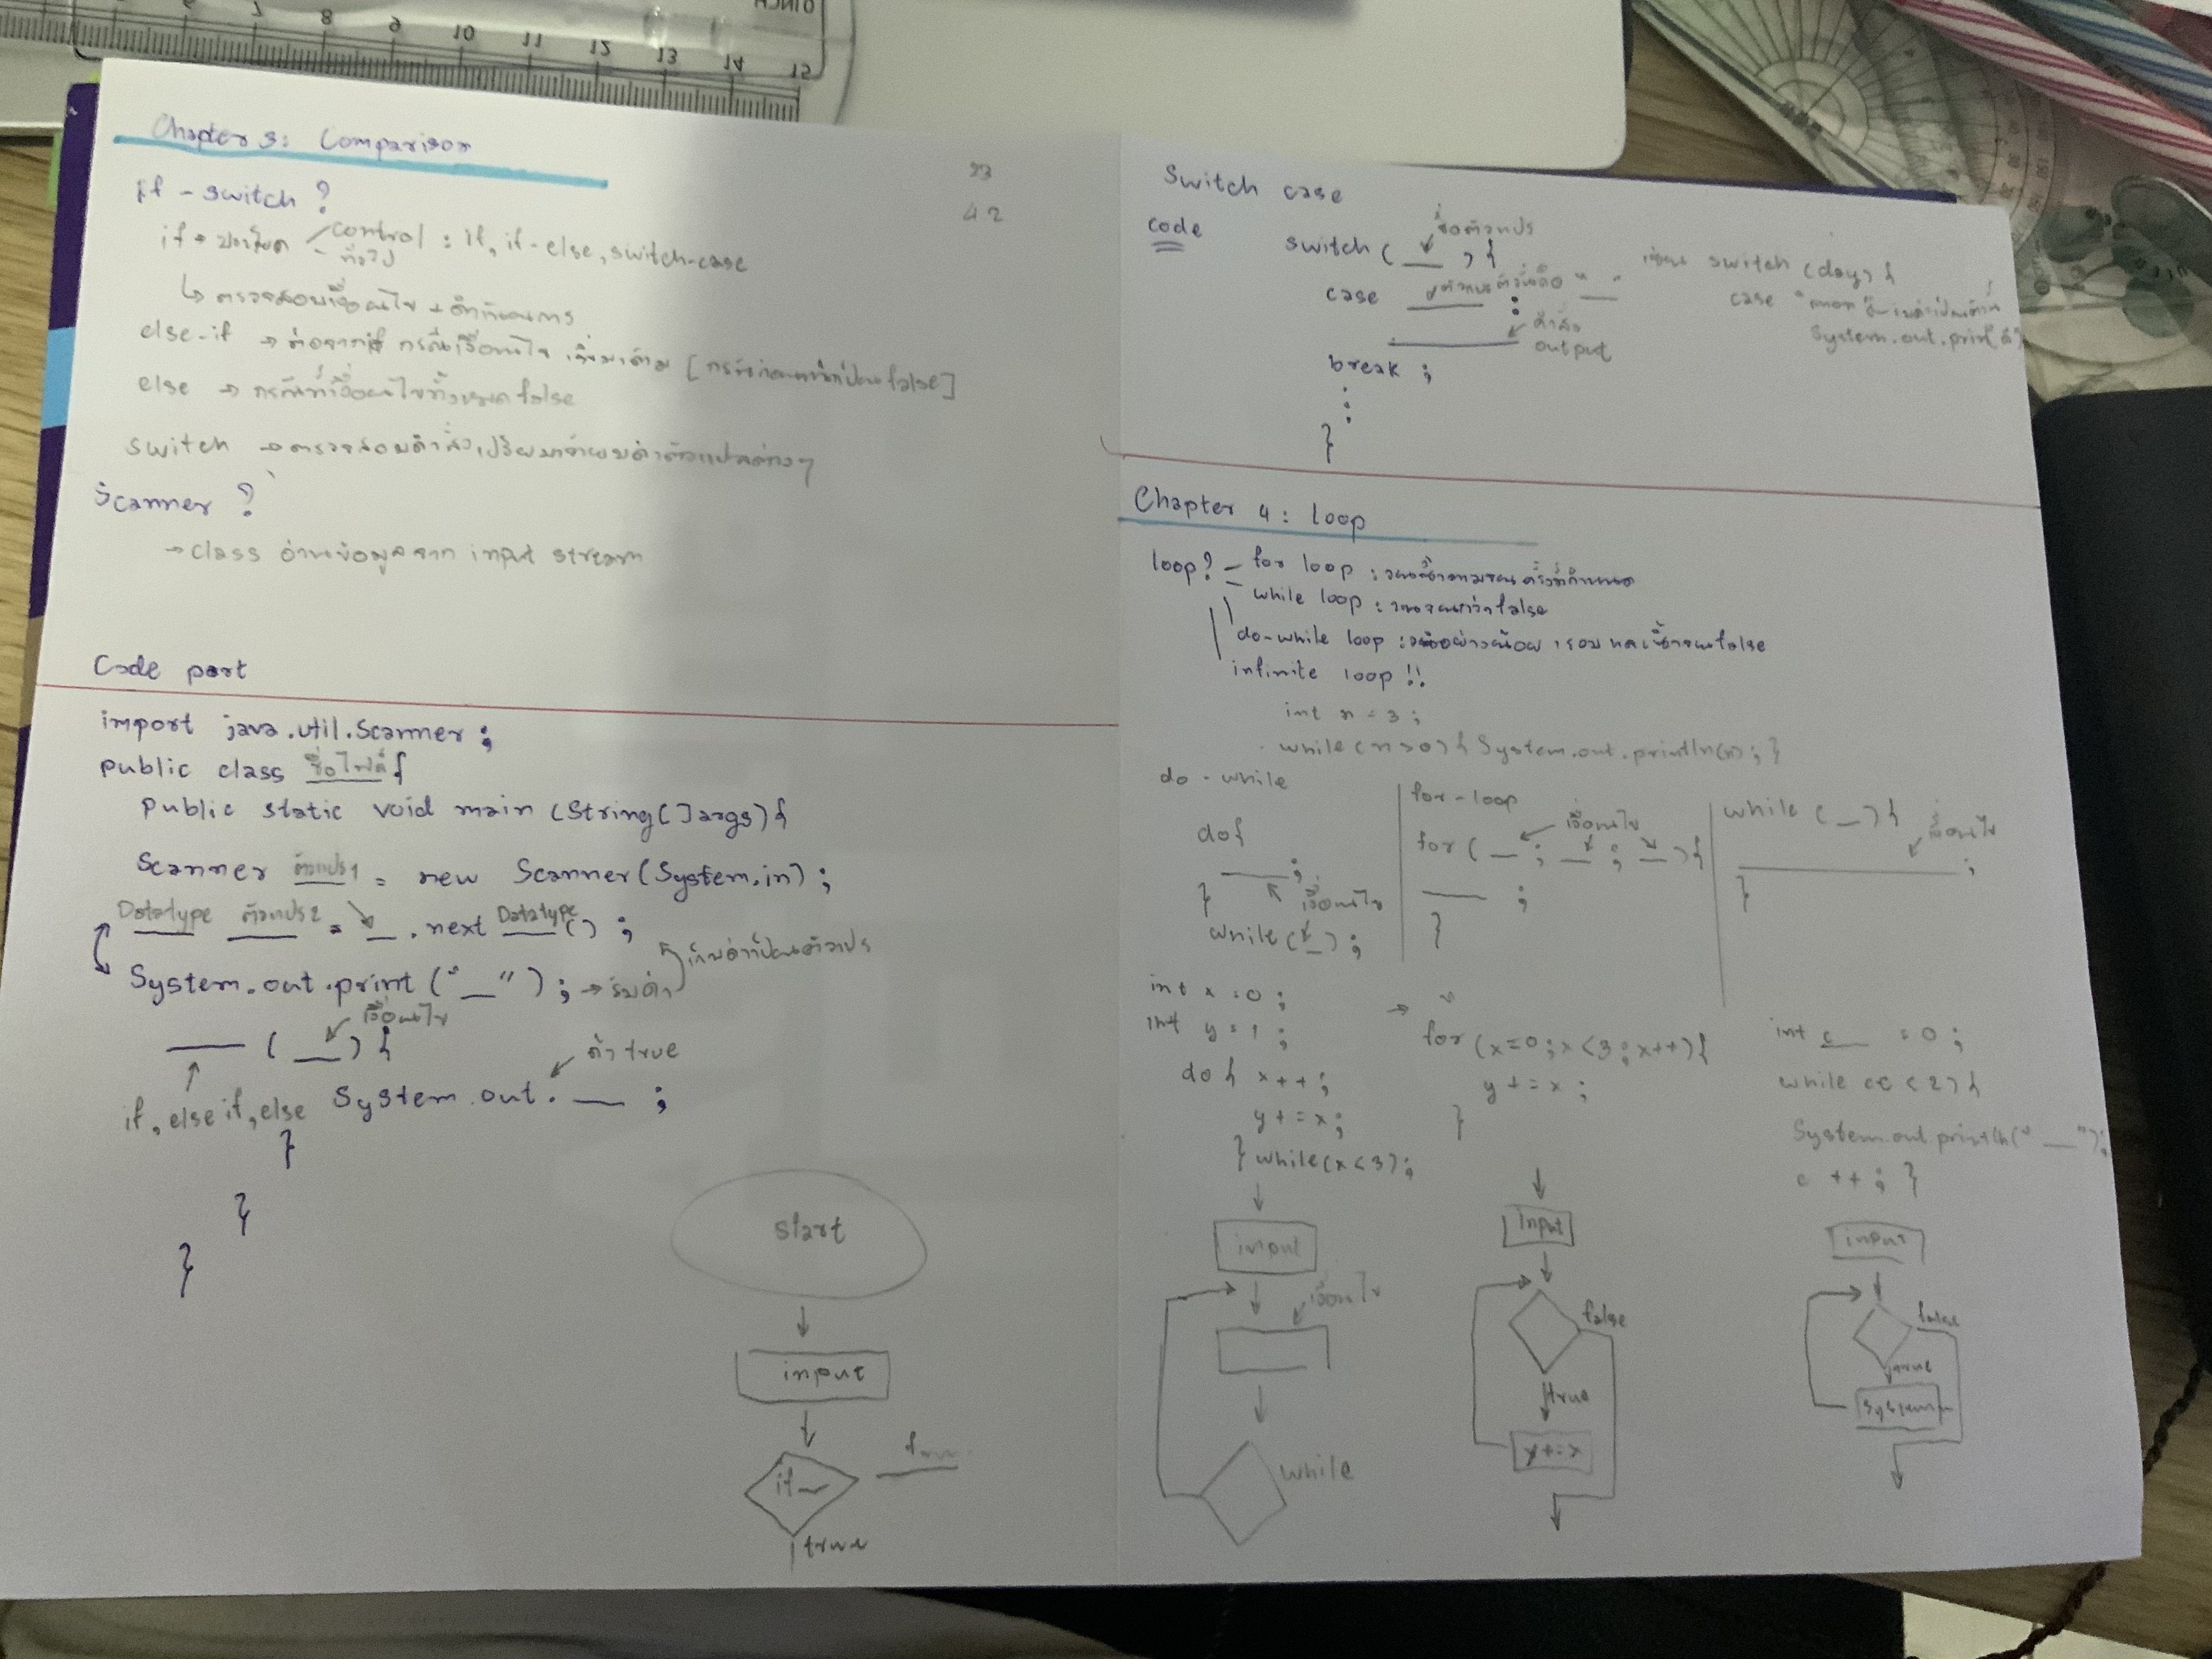 Chapter 3: Comparison
23
4.2
if - switch ?
if → ประโยค control : if, if-else, switch-case
ทั่วไป
↳ ตรวจสอบเงื่อนไข + ดำเนินการ
else-if → ต่อจาก if กรณีเงื่อนไข เพิ่มเติม [กรณีก่อนหน้าเป็น false]
else → กรณีที่เงื่อนไขทั้งหมด false
switch → ตรวจสอบคำสั่งเปรียบเทียบค่าตัวแปรต่างๆ
Scanner ?
→ class อ่านข้อมูลจาก input stream
Code part
import java.util.Scanner ;
public class ชื่อไฟล์ {
public static void main (String[]args){
Scanner ตัวแปร1 = new Scanner(System.in) ;
Datatype ตัวแปร2 = _ .next Datatype() ;
เก็บค่าเป็นตัวแปร
System.out.print ("_") ; → รับค่า
เงื่อนไข
___ ( __ ) {
ถ้า true
if, else if, else System.out. __ ;
}
}
}
start
input
if
true
Switch case
code
ชื่อตัวแปร
switch ( __ ) {
case ___ :
คำสั่ง
output
break ;
:
}
เช่น switch (day) {
case "mon"
System.out.print(
Chapter 4 : loop
loop? - for loop : วนซ้ำตามจน.ครั้งที่กำหนด
while loop : วนจนกว่า false
do-while loop : วนอย่างน้อย 1 รอบ และซ้ำจน false
infinite loop !!
int n = 3 ;
while (n > 0) { System.out.println(n) ; }
do - while
do{
___ ;
} เงื่อนไข
while ( _ ) ;
for-loop
เงื่อนไข
for ( _ ; _ ; _ ){
___ ;
}
while ( _ ) {
เงื่อนไข
___ ;
}
int x = 0 ;
int y = 1 ;
do { x++ ;
y += x ;
} while (x < 3) ;
→
for (x=0 ; x<3 ; x++){
y += x ;
}
int c = 0 ;
while (c < 2) {
System.out.println(" __ ");
c ++ ; }
input
เงื่อนไข
while
Input
false
true
y+=x
input
false
true
System